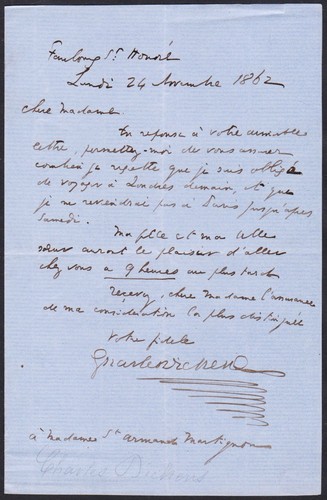 Faubourg St Honoré
Lundi 24 Novembre 1862
Chère Madame.
En reponse à votre aimable
lettre, permettez-moi de vous assurer
combien je regrette que je suis obligé
de voyager à Londres demain, et que
je ne reviendrai pas à Paris jusqu'après
samedi.
Ma fille et ma belle
sœur auront le plaisir d'aller
chez vous à 9 heures au plus tard.
Recevez, chère Madame l'assurance
de ma consideration la plus distinguée
Votre fidele
Charles Dickens
à Madame St Armand Martignon
Charles Dickens